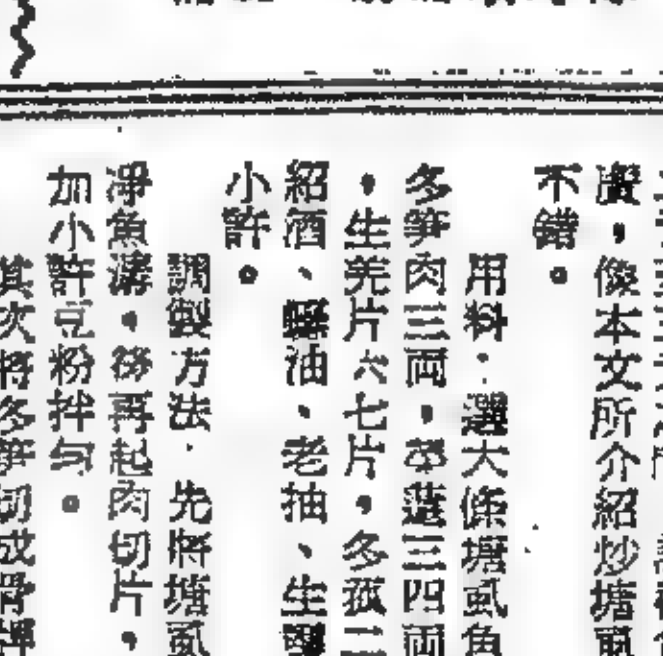 廣，像本文所介紹炒塘虱
不錯。
用料：選大條塘虱魚
冬笋肉三両，草菰三四両
，生羌片六七片，冬菰二
紹酒、蠔油、老抽、生
小許。
調製方法：先將塘虱
凈魚潺，後再起肉切片，
加小許豆粉拌勻。
其次將冬笋切成骨牌